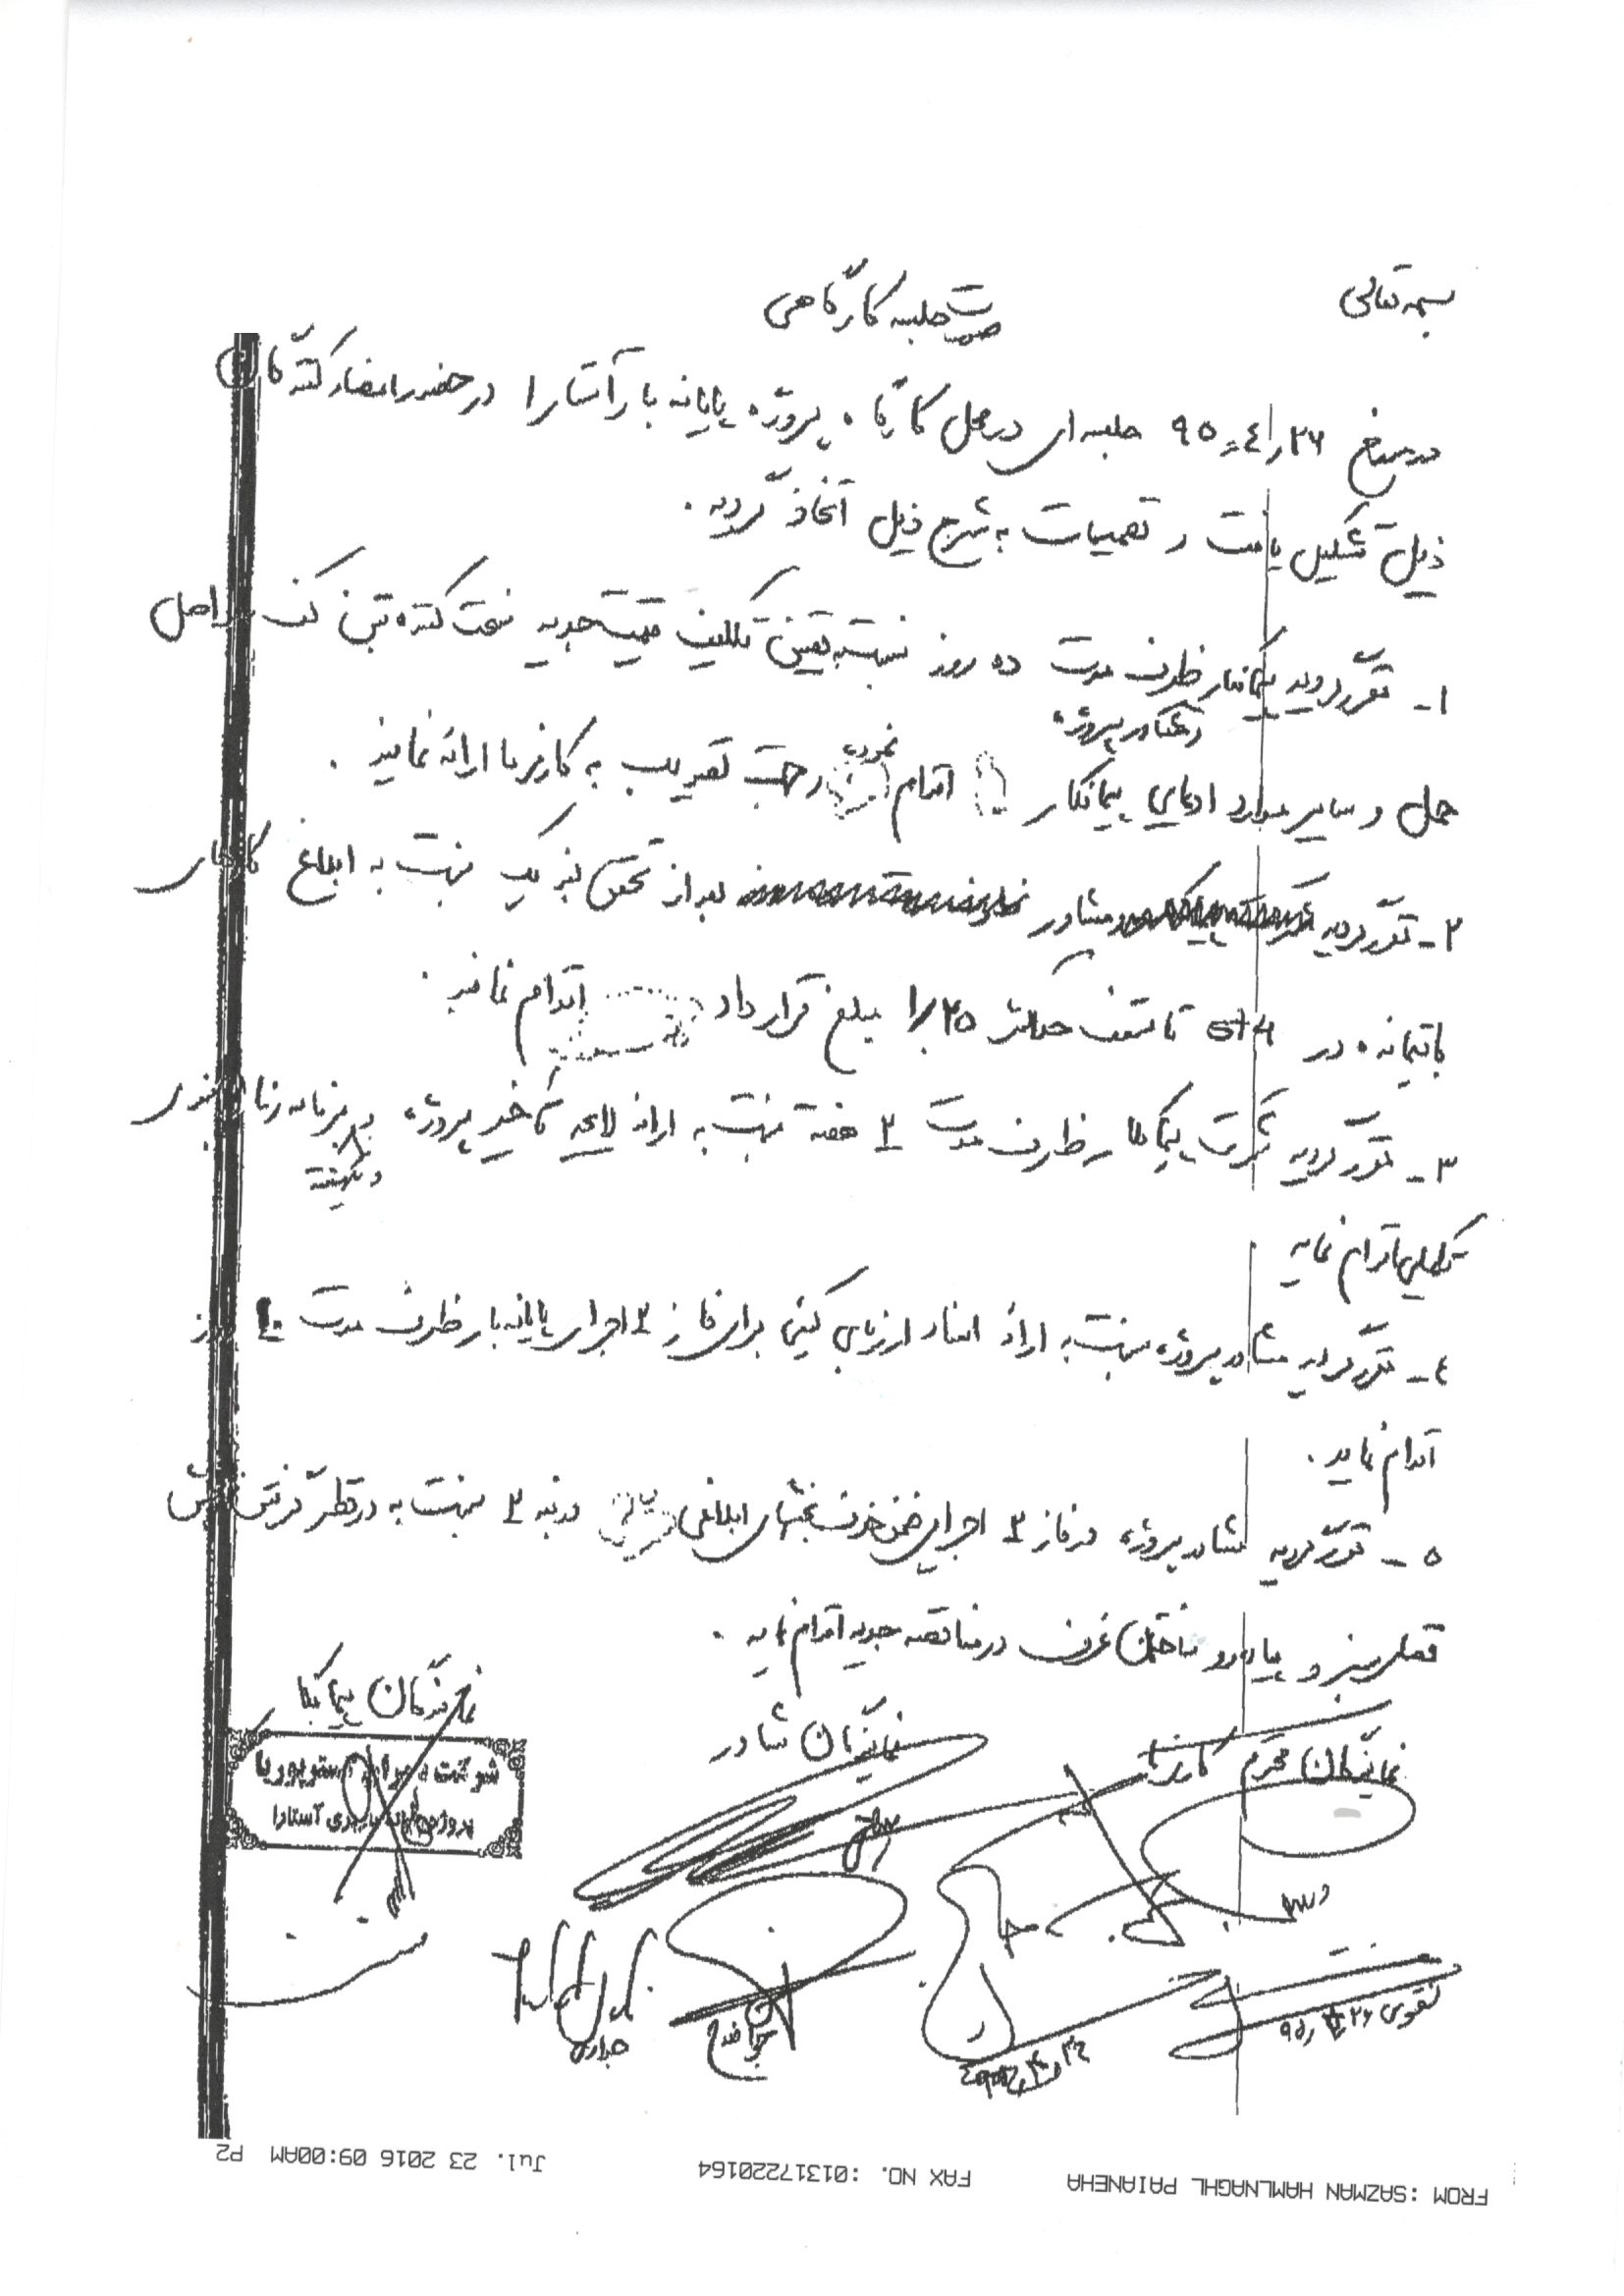 بسمه تعالی
صورتجلسه کارگاهی
در مورخ ۹۵٫۴٫۲۶ جلسه ای در محل کارگاه پروژه پایانه بار آستارا در حضور امضاء کنندگان
ذیل تشکیل یافت و تصمیمات به شرح ذیل اتخاذ گردید.
۱- مقرر گردید پیمانکار ظرف مدت ده روز نسبت به تعیین تکلیف قیمت جدید سخت کننده بتن کف
و مشاور پروژه
حمل و سایر موارد ادعایی پیمانکار اقدام نموده و جهت تصویب به کارفرما ارائه نمایند.
۲- مقرر گردید مشاور بعد از تحقق بند یک نسبت به ابلاغ کارهای
باقیمانده در تا سقف حداکثر ۲۵٪ مبلغ قرارداد اقدام نمایند.
۳- مقرر گردید شرکت پیمانکار ظرف مدت ۲ هفته نسبت به ارائه لایحه تاخیر پروژه
تکمیلی اقدام نماید
۴- مقرر گردید مشاور پروژه نسبت به ارائه اسناد ارزیابی کیفی برای فاز ۲ اجرای پایانه بار ظرف مدت ۱۰ روز
اقدام نماید.
۵- مقرر گردید مشاور پروژه در فاز ۲ اجرایی ضمن حذف بخشهای ابلاغی در بند ۲ نسبت به در نظر گرفتن
فضای سبز و پیاده رو ساختمان غرف در مناقصه جدید اقدام نماید.
نمایندگان محترم کارفرما
نمایندگان مشاور
نمایندگان پیمانکار
پروژه آستارا
تقوی ۹۵٫۴٫۲۶
FROM :SAZMAN HAMLNAGHL PAIANEHA FAX NO. :01317220164 Jul. 23 2016 09:00AM P2